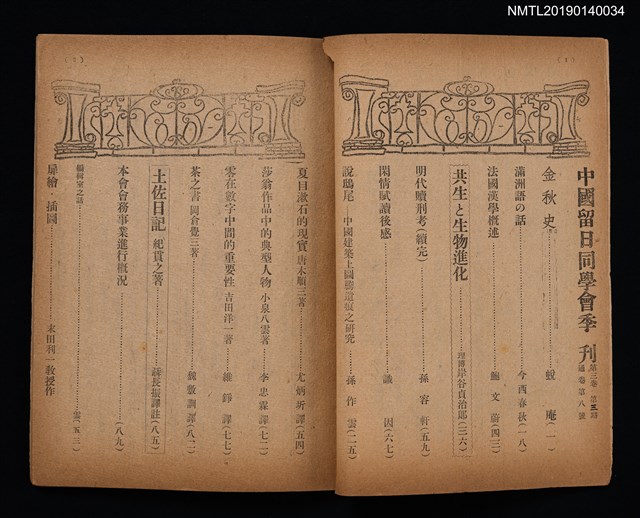 NMTL20190140034
(1)
中國留日同學會季刊 第三卷 第三期 通卷第八號
金秋史………蛻 庵(一)
滿洲語の話………今西春秋(一八)
法國漢學概述………鮑文蔚(四三)
共生と生物進化………理博岸谷貞治郎(三六)
明代贖刑考(續完)………孫容軒(五九)
閑情賦讀後感………議因(六七)
說鴟尾 中國建築上圖騰遺痕之研究………孫作雲(二五)
(2)
夏目漱石的現實 唐木順三著………尤炳圻譯(五四)
莎翁作品中的典型人物 小泉八雲著………李忠霖譯(七二)
零在數字中間的重要性 吉田洋一著………維錚譯(七七)
茶之書 岡倉覺三著………錢敬調譯(八二)
土佐日記 紀貫之著………謝長振譯註(八五)
本會會務事業進行概況………(八九)
編輯室之話………雲(五三)
扉繪・插圖………末田利一教授作